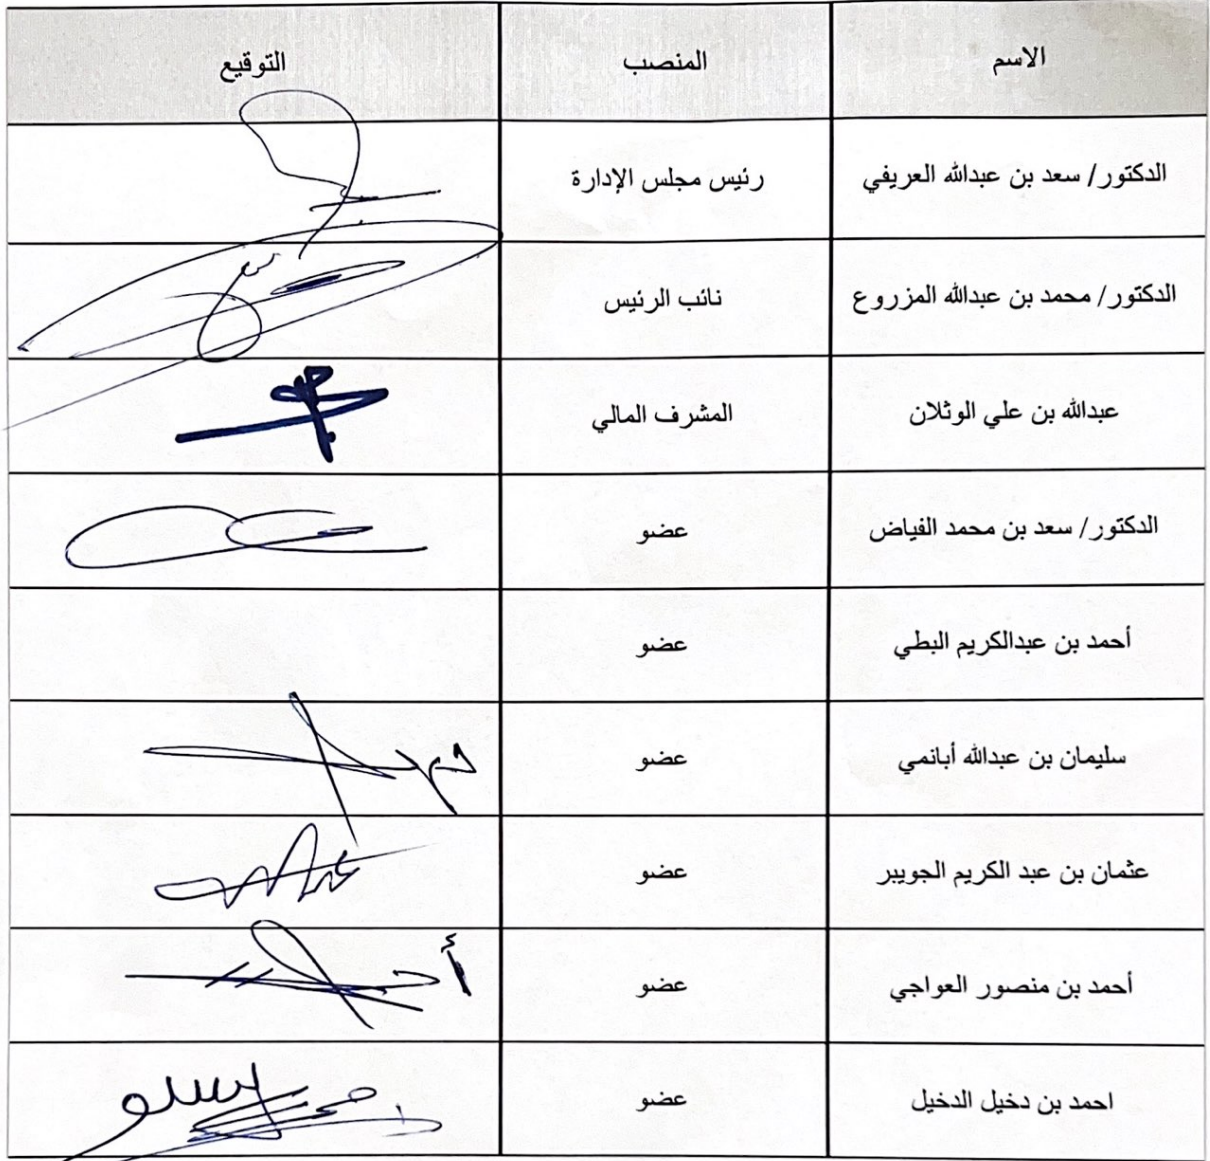 الاسم المنصب التوقيع
الدكتور/ سعد بن عبدالله العريفي رئيس مجلس الإدارة
الدكتور/ محمد بن عبدالله المزروع نائب الرئيس
عبدالله بن علي الوثلان المشرف المالي
الدكتور/ سعد بن محمد الفياض عضو
أحمد بن عبدالكريم البطي عضو
سليمان بن عبدالله أبانمي عضو
عثمان بن عبد الكريم الجويبر عضو
أحمد بن منصور العواجي عضو
احمد بن دخيل الدخيل عضو